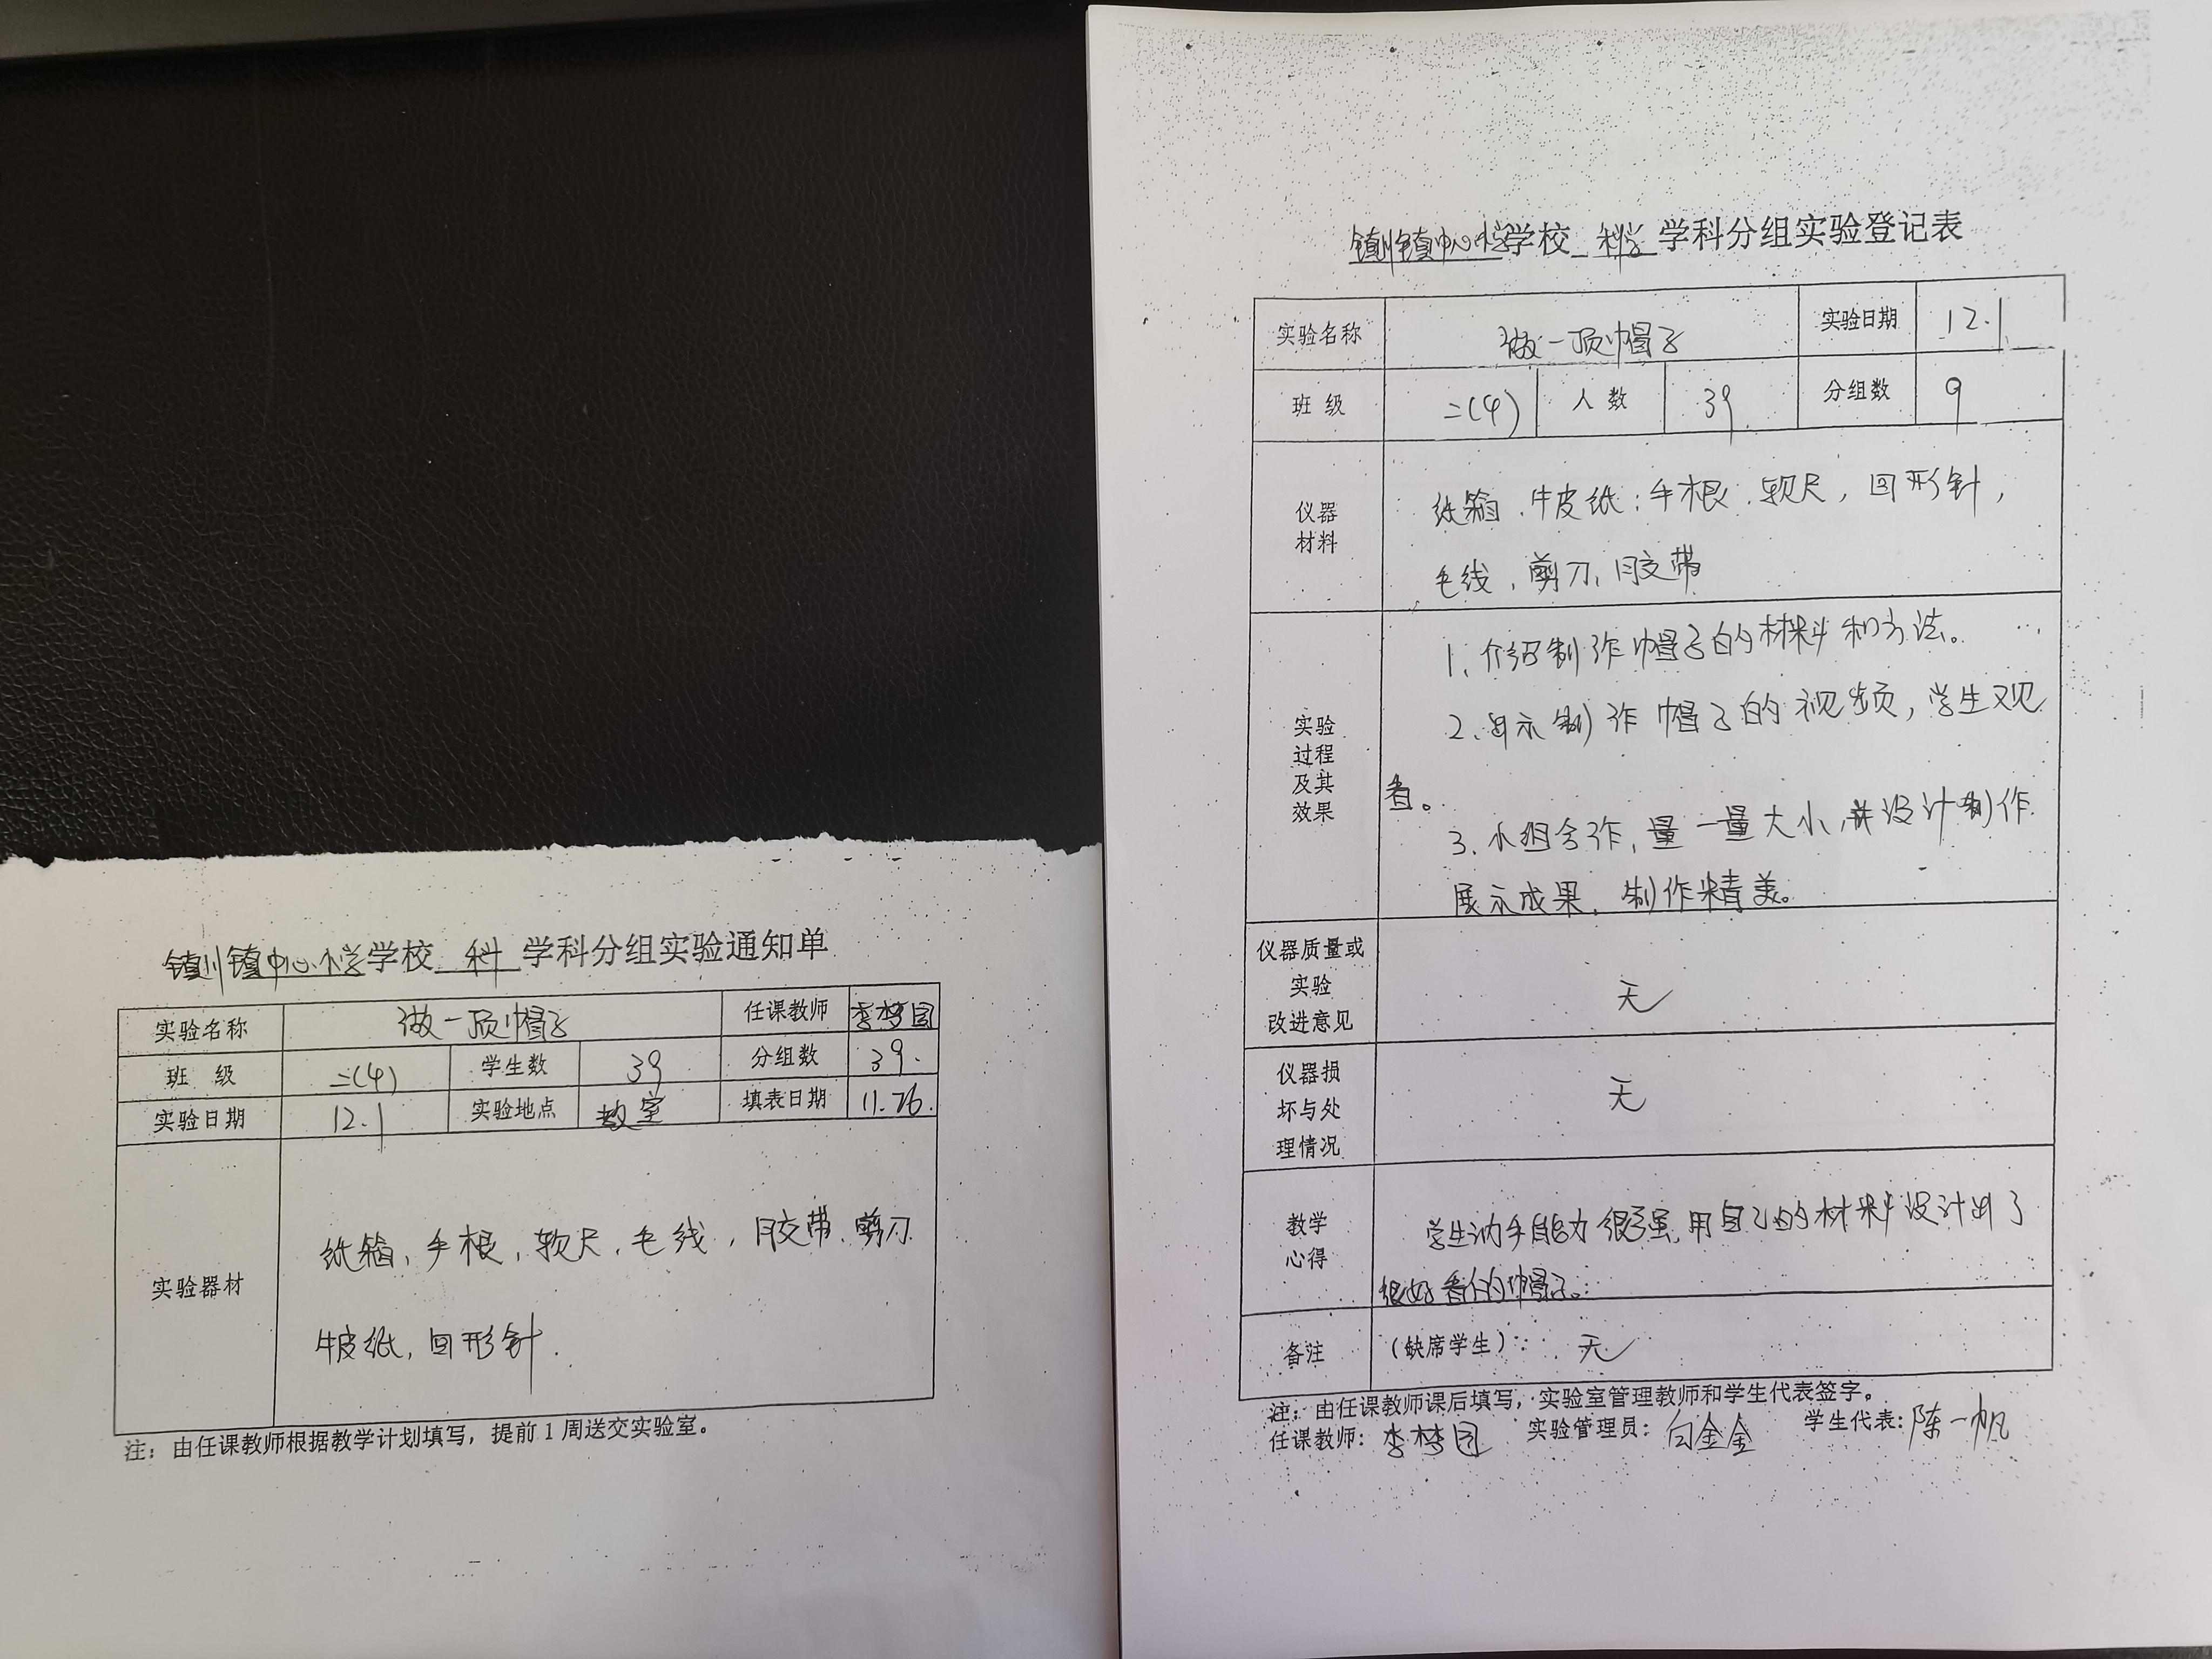 镇川镇中心小学学校 科 学科分组实验通知单
实验名称 做一顶帽子 任课教师 李梦园
班 级 二(4) 学生数 39 分组数 39.
实验日期 12.1 实验地点 教室 填表日期 11.26.
实验器材
纸箱,手根,软尺,毛线,胶带.剪刀
牛皮纸,回形针.
注：由任课教师根据教学计划填写，提前1周送交实验室。
镇川镇中心小学学校 科学 学科分组实验登记表
实验名称 做一顶帽子 实验日期 12.1
班 级 二(4) 人 数 39 分组数 9
仪器
材料
纸箱.牛皮纸;手根.软尺,回形针,
毛线,剪刀,胶带
实验
过程
及其
效果
1.介绍制作帽子的材料和方法。
2.出示制作帽子的视频,学生观
看。
3.小组合作,量一量大小,并设计制作.
展示成果,制作精美。
仪器质量或
实验
改进意见
无
仪器损
坏与处
理情况
无
教学
心得
学生动手能力很强,用自己的材料设计出了
很好看的帽子。
备注 （缺席学生）： 无
注：由任课教师课后填写，实验室管理教师和学生代表签字。
任课教师：李梦园 实验管理员：白金金 学生代表：陈一帆